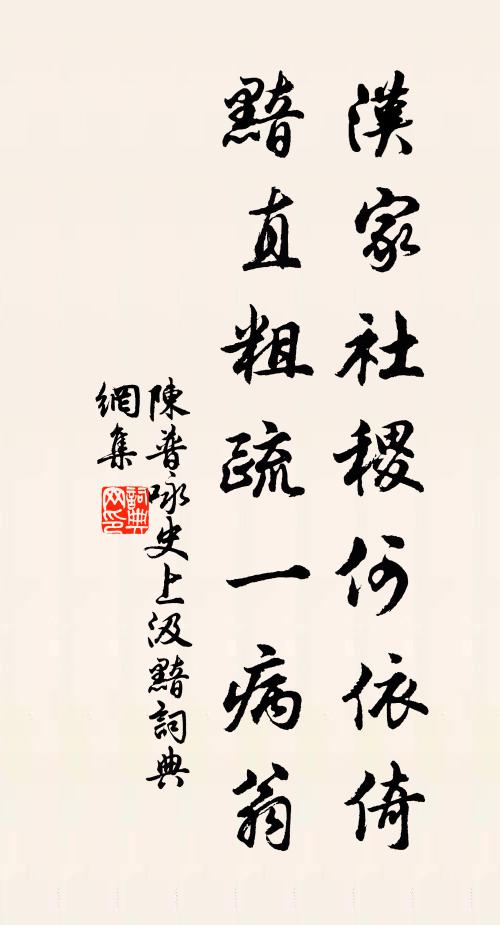 漢家社稷何依倚
黯直粗疏一病翁
陳普咏史上汲黯詞典
網集
詞典網印